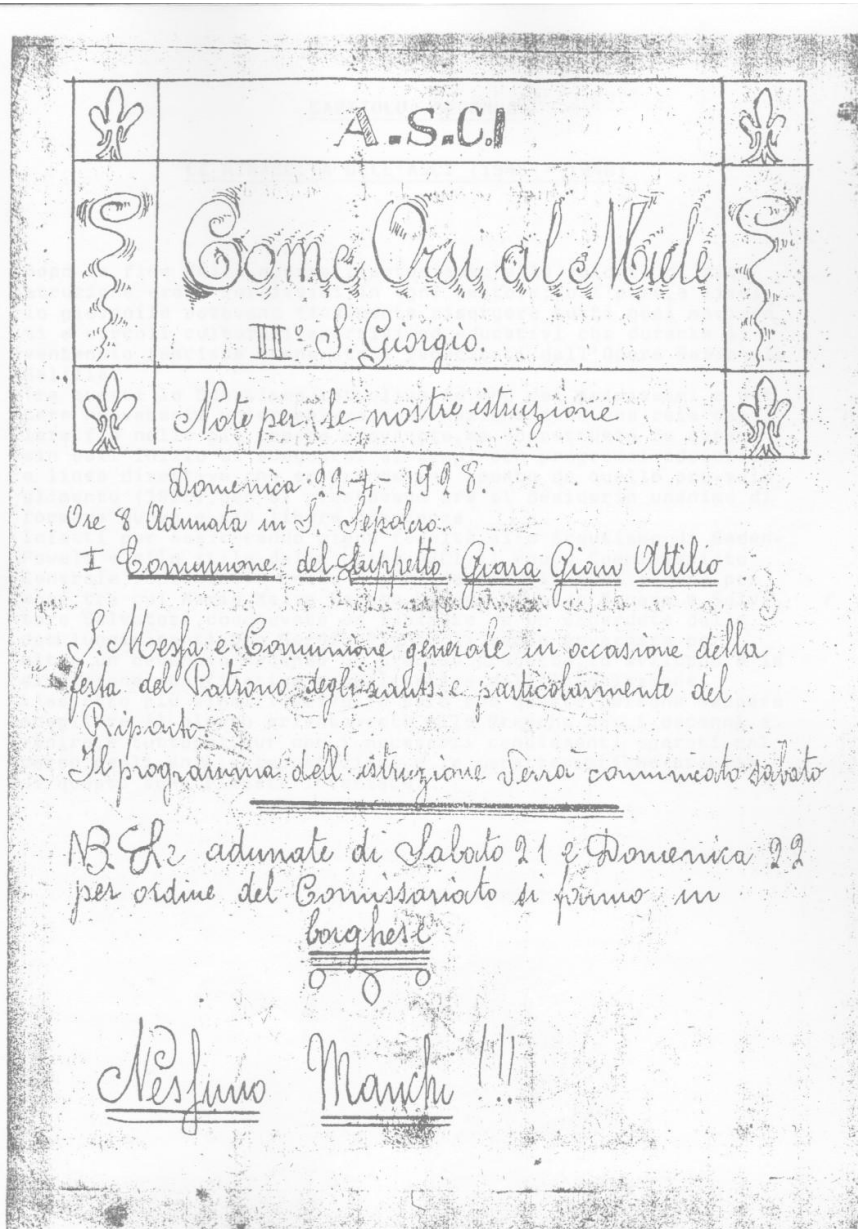 A.S.C.I
Come Orsi al Miele
III° S. Giorgio.
Note per le nostre istruzione
Domenica 22-4-1928.
Ore 8 Adunata in S. Sepolcro.
I Comunione del Luppetto Giara Gian Attilio
S. Messa e Comunione generale in occasione della
festa del Patrono degli e particolarmente del
Riparto.
Il programma dell'istruzione verrà comunicato sabato
NB. Le adunate di Sabato 21 e Domenica 22
per ordine del Comissariato si fanno in
borghese
Nessuno Manchi !!!